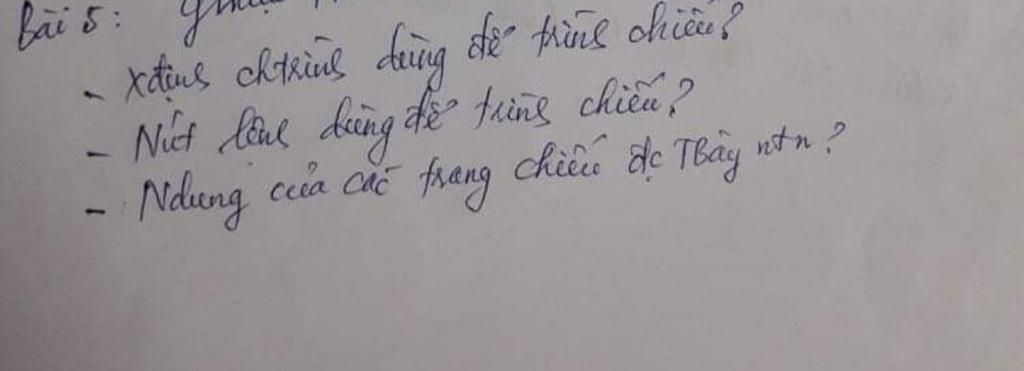 Bài 5:
- Xđịnh chtrình dùng để trình chiếu?
- Nút lệnh dùng để trình chiếu?
- Ndung của các trang chiếu đc TBày ntn?